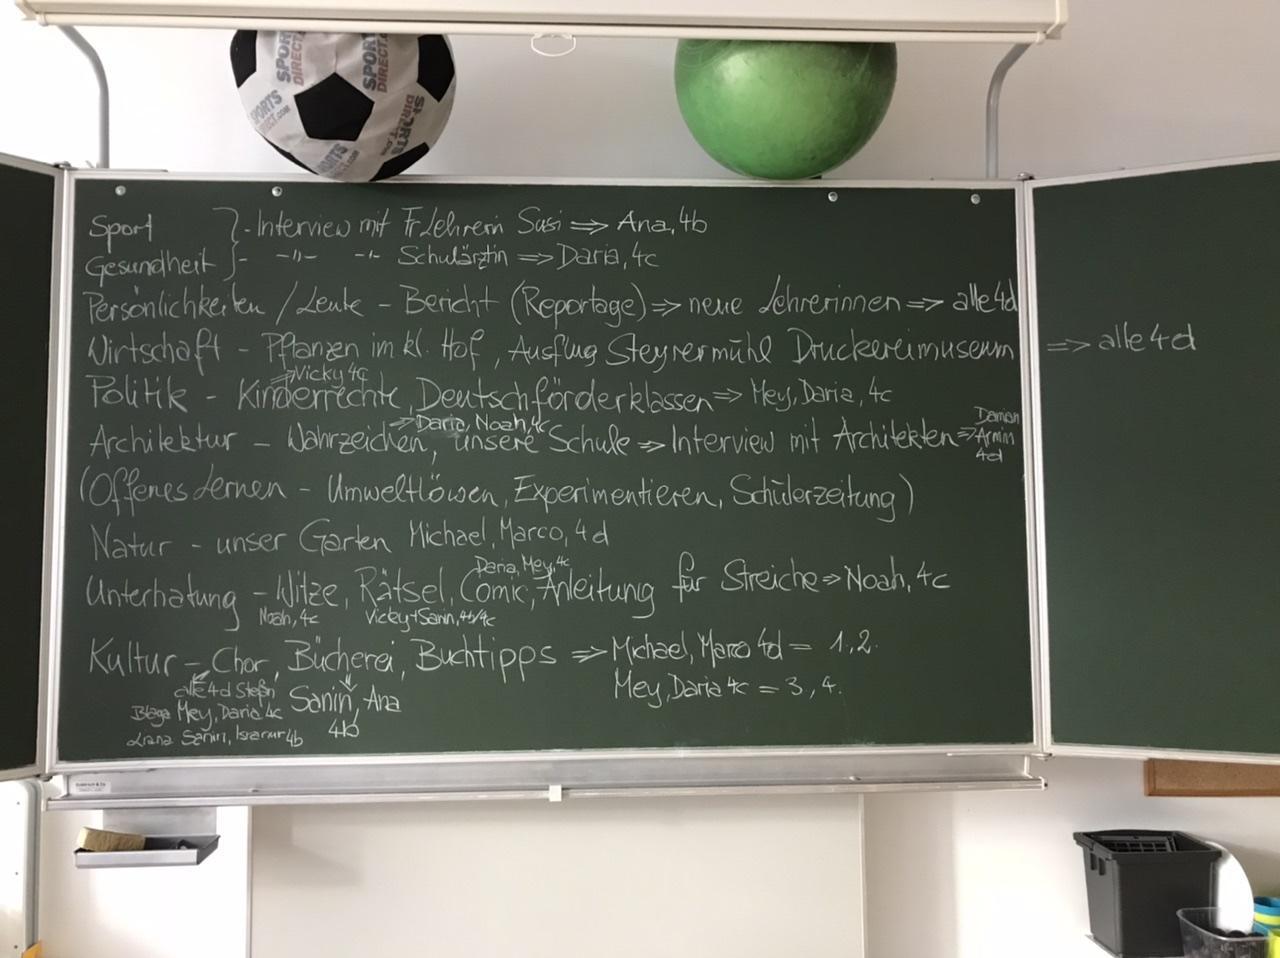 SPORTS DIRECT.COM
SPORTS DIRECT.COM
Sport } - Interview mit Fr Lehrerin Susi => Ana, 4b
Gesundheit } - -"- -"- Schulärztin => Daria, 4c
Persönlichkeiten / Leute - Bericht (Reportage) => neue Lehrerinnen => alle 4d
Wirtschaft - Pflanzen im kl. Hof, Ausflug Steyrermühl Druckereimuseum => alle 4d
=> Vicky 4c
Politik - Kinderrechte, Deutschförderklassen => Mey, Daria, 4c
=> Daria, Noah, 4c
Architektur - Wahrzeichen, unsere Schule => Interview mit Architekten => Damian Armin 4d
(Offenes Lernen - Umweltlöwen, Experimentieren, Schülerzeitung)
Natur - unser Garten Michael, Marco, 4d
Daria, Mey, 4c
Unterhatung - Witze, Rätsel, Comic, Anleitung für Streiche => Noah, 4c
Noah, 4c Vicky + Sanin, 4b/4c
Kultur - Chor, Bücherei, Buchtipps => Michael, Marco 4d = 1., 2.
Mey, Daria 4c = 3., 4.
alle 4d Stefan
Mey, Daria 4c
Sanin, 4b
Sanin, Ana
4b